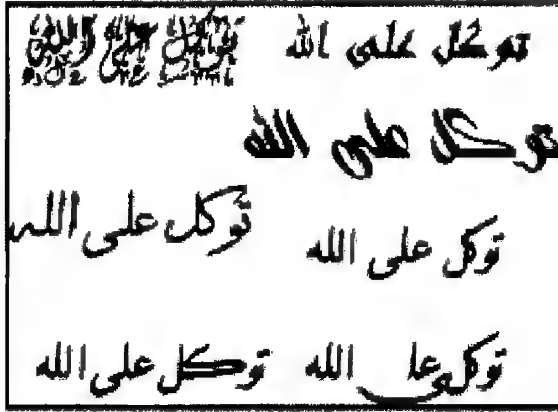 توكل على الله
توكل على الله
توكل على الله
توكل على الله
توكل على الله
توكل على الله
توكل على الله